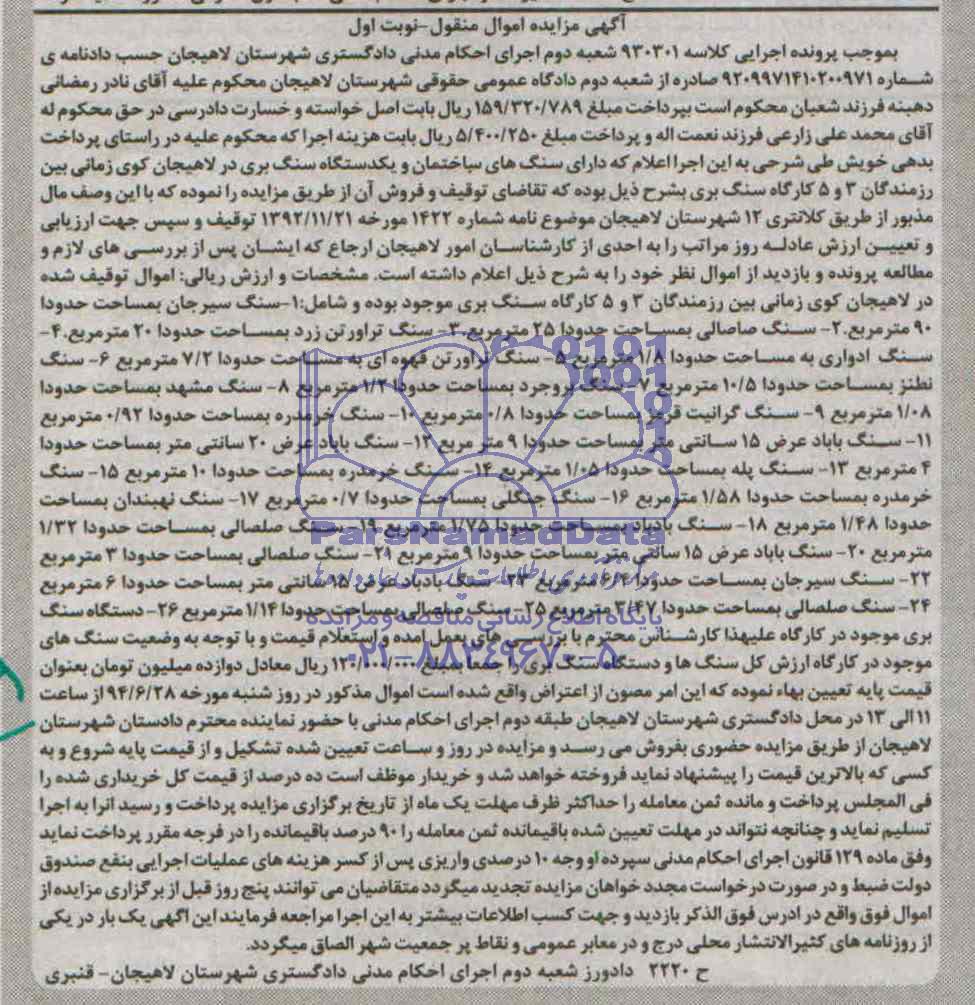 آگهی مزایده اموال منقول-نوبت اول
بموجب پرونده اجرایی کلاسه ۹۳۰۳۰۱ شعبه دوم اجرای احکام مدنی دادگستری شهرستان لاهیجان حسب دادنامه ی
شماره ۹۲۰۹۹۷۱۴۱۰۲۰۰۹۷۱ صادره از شعبه دوم دادگاه عمومی حقوقی شهرستان لاهیجان محکوم علیه آقای نادر رمضانی
دهبنه فرزند شعبان محکوم است بپرداخت مبلغ ۱۵۹/۳۲۰/۷۸۹ ریال بابت اصل خواسته و خسارت دادرسی در حق محکوم له
آقای محمد علی زارعی فرزند نعمت اله و پرداخت مبلغ ۵/۴۰۰/۲۵۰ ریال بابت هزینه اجرا که محکوم علیه در راستای پرداخت
بدهی خویش طی شرحی به این اجرا اعلام که دارای سنگ های ساختمان و یکدستگاه سنگ بری در لاهیجان کوی زمانی بین
رزمندگان ۳ و ۵ کارگاه سنگ بری بشرح ذیل بوده که تقاضای توقیف و فروش آن از طریق مزایده را نموده که با این وصف مال
مذبور از طریق کلانتری ۱۲ شهرستان لاهیجان موضوع نامه شماره ۱۴۲۲ مورخه ۱۳۹۲/۱۱/۲۱ توقیف و سپس جهت ارزیابی
و تعییـن ارزش عادلـه روز مراتب را به احدی از کارشناسان امور لاهیجان ارجاع که ایشان پس از بررسی های لازم و
مطالعه پرونده و بازدید از اموال نظر خود را به شرح ذیل اعلام داشته است. مشخصات و ارزش ریالی: اموال توقیف شده
در لاهیجان کوی زمانی بین رزمندگان ۳ و ۵ کارگاه سنگ بری موجود بوده و شامل:۱-سنگ سیرجان بمساحت حدودا
۹۰ مترمربع.۲- سنگ صاصالی بمساحت حدودا ۲۵ مترمربع.۳- سنگ تراورتن زرد بمساحت حدودا ۲۰ مترمربع.۴-
سنگ ادواری به مساحت حدودا ۱/۸ مترمربع ۵- سنگ تراورتن قهوه ای به مساحت حدودا ۷/۲ مترمربع ۶- سنگ
نطنز بمساحت حدودا ۱۰/۵ مترمربع ۷- سنگ بروجرد بمساحت حدودا ۱/۲ مترمربع ۸- سنگ مشهد بمساحت حدودا
۱/۰۸ مترمربع ۹- سنگ گرانیت قرمز بمساحت حدودا ۰/۸ مترمربع ۱۰- سنگ خرمدره بمساحت حدودا ۰/۹۲ مترمربع
۱۱- سنگ باباد عرض ۱۵ سانتی متر بمساحت حدودا ۹ متر مربع ۱۲- سنگ باباد عرض ۲۰ سانتی متر بمساحت حدودا
۴ مترمربع ۱۳- سنگ پله بمساحت حدودا ۱/۰۵ مترمربع ۱۴- سنگ خرمدره بمساحت حدودا ۱۰ مترمربع ۱۵- سنگ
خرمدره بمساحت حدودا ۱/۵۸ مترمربع ۱۶- سنگ جنگلی بمساحت حدودا ۰/۷ مترمربع ۱۷- سنگ نهبندان بمساحت
حدودا ۱/۴۸ مترمربع ۱۸- سنگ بادباد بمساحت حدودا ۱/۷۵ مترمربع ۱۹- سنگ صلصالی بمساحت حدودا ۱/۳۲
مترمربع ۲۰- سنگ باباد عرض ۱۵ سانتی متر بمساحت حدودا ۹ مترمربع ۲۱- سنگ صلصالی بمساحت حدودا ۳ مترمربع
۲۲- سنگ سیرجان بمساحت حدودا ۶/۴ مترمربع ۲۳- سنگ بادباد عرض ۱۵ سانتی متر بمساحت حدودا ۶ مترمربع
۲۴- سنگ صلصالی بمساحت حدودا ۳/۴۷ مترمربع ۲۵- سنگ صلصالی بمساحت حدودا ۱/۱۴ مترمربع ۲۶- دستگاه سنگ
بری موجود در کارگاه علیهذا کارشناس محترم با بررسی های بعمل آمده و استعلام قیمت و با توجه به وضعیت سنگ های
موجود در کارگاه ارزش کل سنگ ها و دستگاه سنگ بری را جمعا مبلغ ریال معادل دوازده میلیون تومان بعنوان
قیمت پایه تعیین بهاء نموده که این امر مصون از اعتراض واقع شده است اموال مذکور در روز شنبه مورخه ۹۴/۶/۲۸ از ساعت
۱۱ الی ۱۳ در محل دادگستری شهرستان لاهیجان طبقه دوم اجرای احکام مدنی با حضور نماینده محترم دادستان شهرستان
لاهیجان از طریق مزایده حضوری بفروش می رسد و مزایده در روز و ساعت تعیین شده تشکیل و از قیمت پایه شروع و به
کسی که بالاترین قیمت را پیشنهاد نماید فروخته خواهد شد و خریدار موظف است ده درصد از قیمت کل خریداری شده را
فی المجلس پرداخت و مانده ثمن معامله را حداکثر ظرف مهلت یک ماه از تاریخ برگزاری مزایده پرداخت و رسید انرا به اجرا
تسلیم نماید و چنانچه نتواند در مهلت تعیین شده باقیمانده ثمن معامله را ۹۰ درصد باقیمانده را در فرجه مقرر پرداخت نماید
وفق ماده ۱۲۹ قانون اجرای احکام مدنی سپرده او وجه ۱۰ درصدی واریزی پس از کسر هزینه های عملیات اجرایی بنفع صندوق
دولت ضبط و در صورت درخواست مجدد خواهان مزایده تجدید میگردد متقاضیان می توانند پنج روز قبل از برگزاری مزایده از
اموال فوق واقع در ادرس فوق الذکر بازدید و جهت کسب اطلاعات بیشتر به این اجرا مراجعه فرمایند این اگهی یک بار در یکی
از روزنامه های کثیرالانتشار محلی درج و در معابر عمومی و نقاط پر جمعیت شهر الصاق میگردد.
ح ۲۲۲۰ دادورز شعبه دوم اجرای احکام مدنی دادگستری شهرستان لاهیجان- قنبری
ParaNamadData
پایگاه اطلاع رسانی مناقصه و مزایده
۰۲۱-۸۸۳۴۹۶۷۰-۵